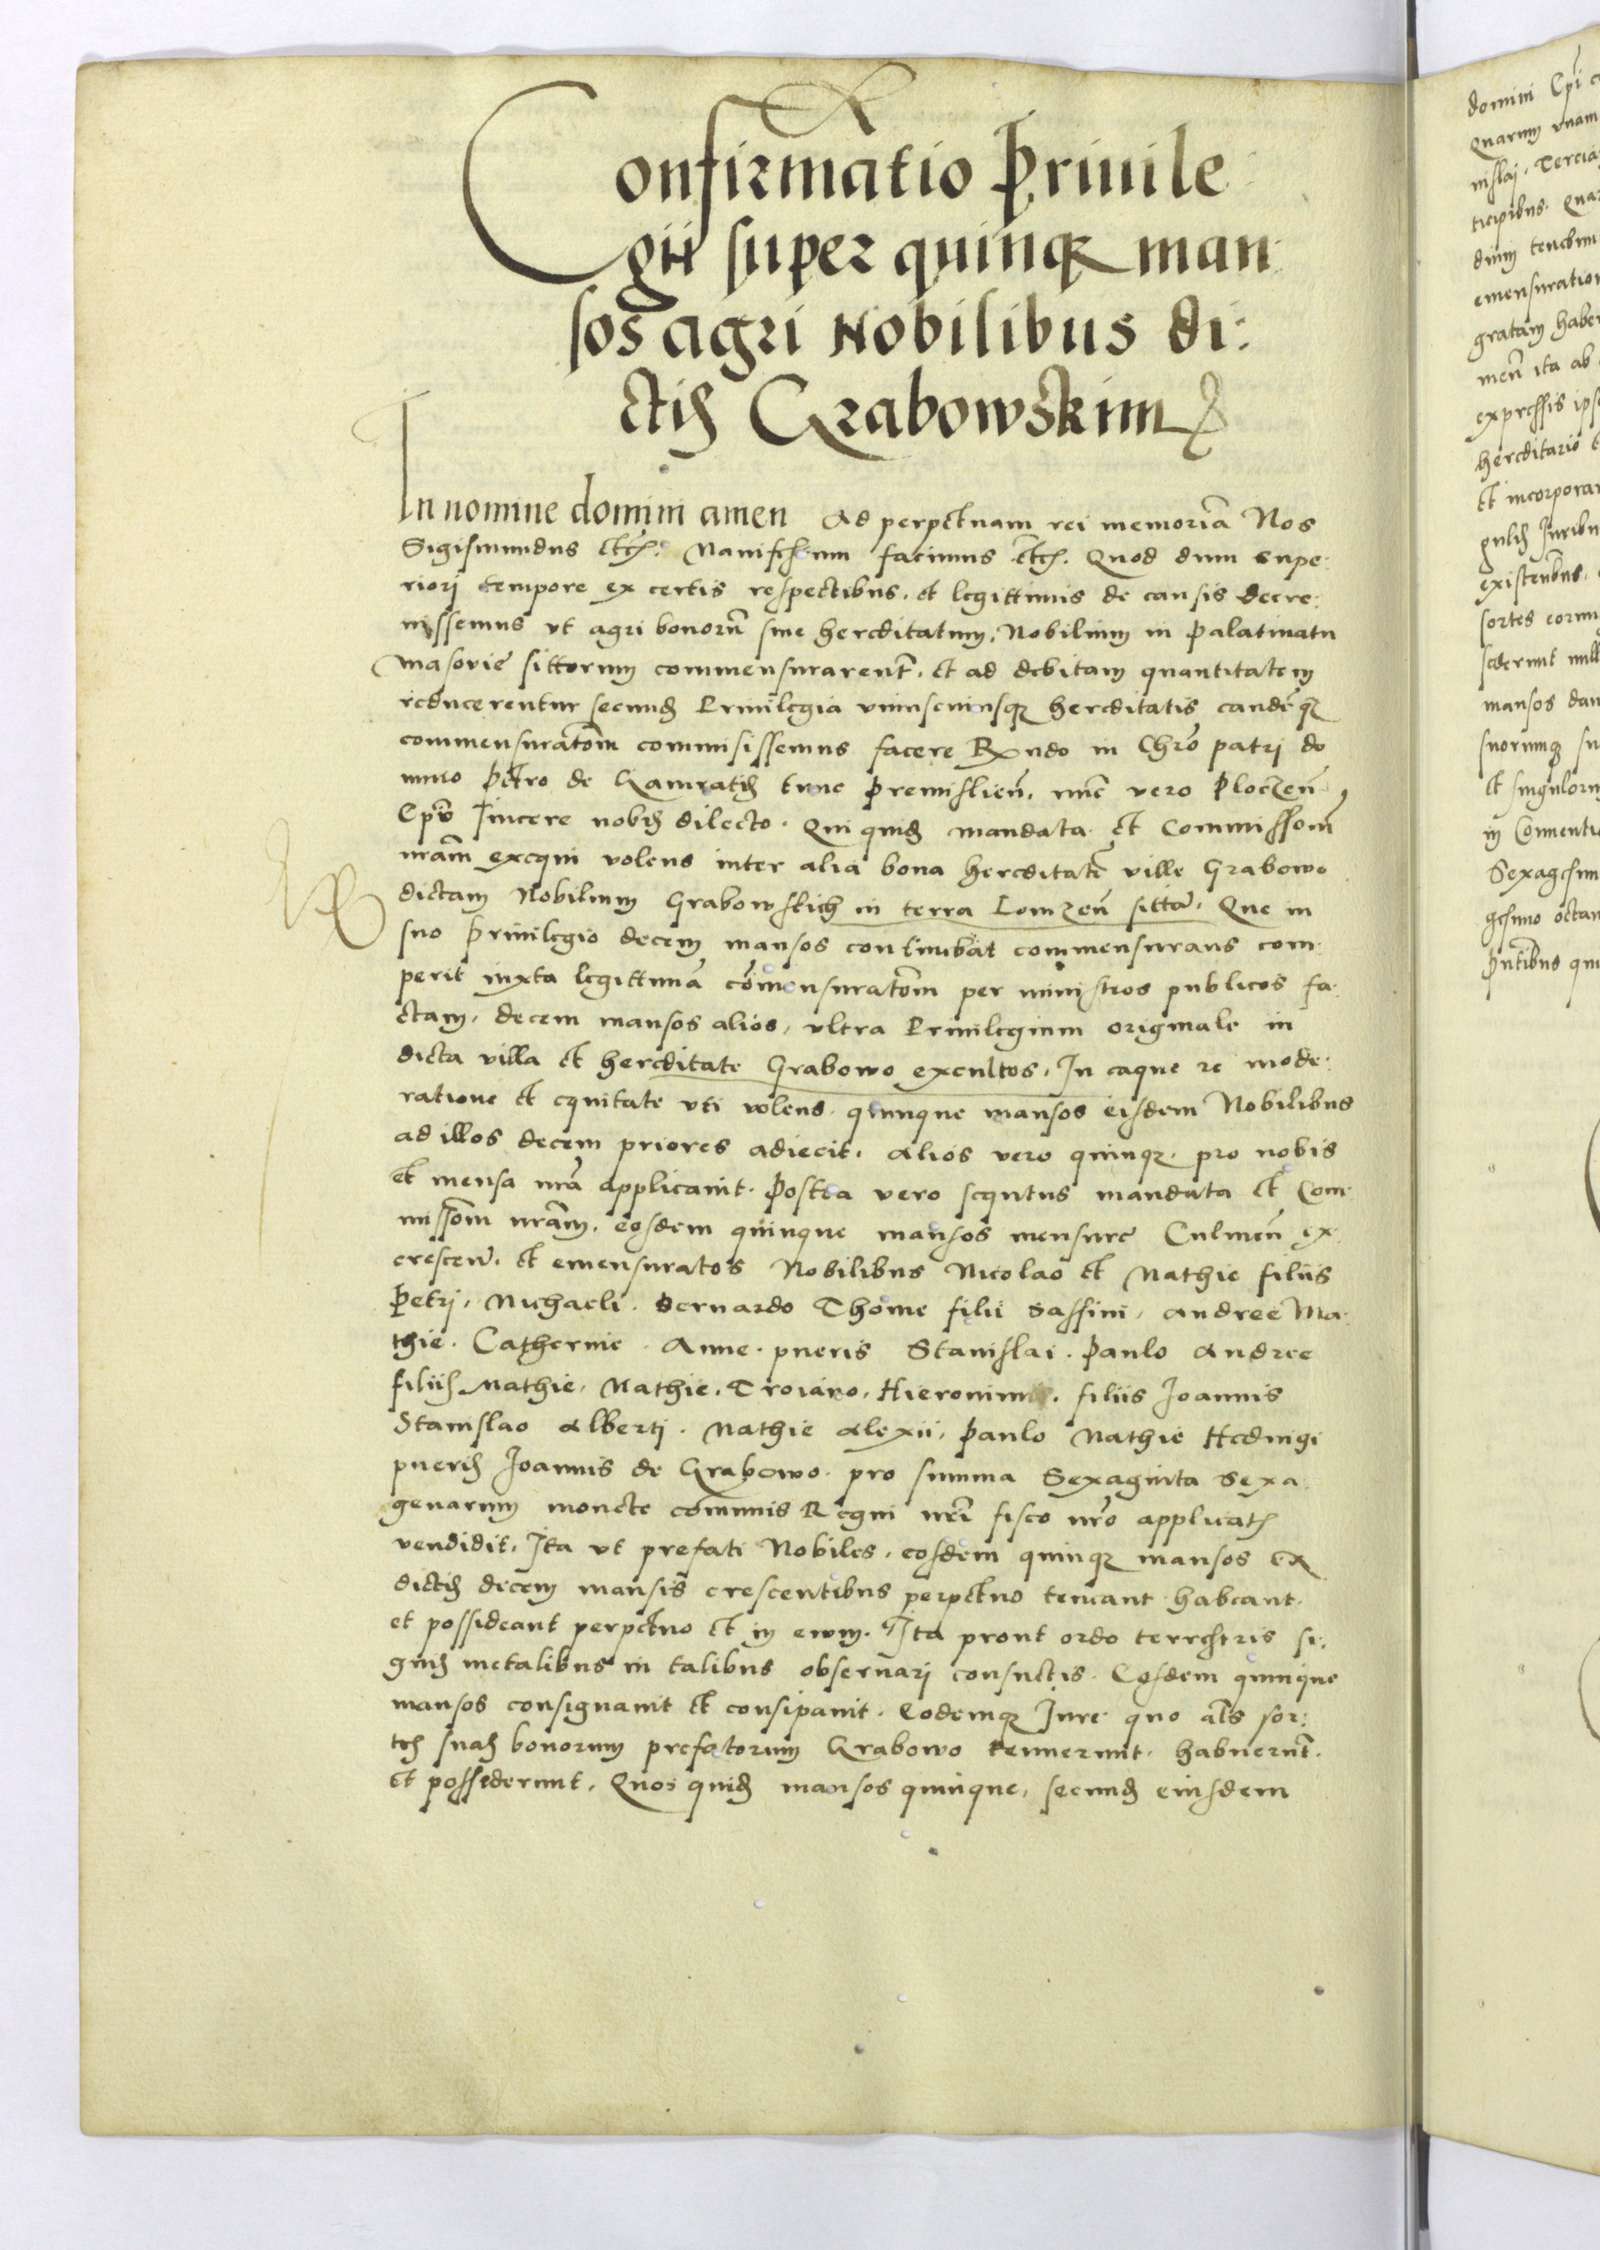 Confirmatio Priuile
gii super quinqꝫ man
sos agri Nobilibus di:
ctis Grabowskim
In nomine domini amen Ad perpetuam rei memoriã Nos
Sigismundus etc. Manifestum facimus etc. Quod dum supe:
riori tempore ex certis respectibus, et legittimis de causis decre:
uissemus vt agri bonorũ siue hereditatum, Nobilium in Palatinatu
Masouie sittorum commensurarent̃, et ad debitam quantitatem
reducerentur secund Priuilegia vniuscuiusqꝫ hereditatis eandẽqꝫ
commensuratõm commisissemus facere Rndo in Chrõ patri do
mino Petro de Gamratis tunc Premislieñ, nũc vero Ploczeñ
Epõ sincere nobis dilecto. Qui quid mandata et Commissioñ
nrãm exequi volens inter alia bona hereditatẽ ville Grabowo
dictam Nobilium Grabowskich in terra Lomzeñ sittã, Que in
suo Priuilegio decem mansos continebat commensurans com:
perit iuxta legittimã cõmensuratõm per ministros publicos fa:
ctam, decem mansos alios, vltra Priuilegium originale in
dicta villa et hereditate Grabowo excultos, In eaque re mode:
ratione et equitate vti volens quinque mansos eisdem Nobilibus
ad illos decem priores adiecit, alios vero quinqꝫ pro nobis
et mensa nrã applicauit. Postea vero sequtus mandata et Com
missiom nrãm, eosdem quinque mansos mensure Culmeñ ex
cresceñ, et emensuratos Nobilibus Nicolao et Mathie filiis
Petri, Michaeli Bernardo Thome filii Sassini, Andree Ma:
thie. Catherine. Anne. pueris Stanislai. Paulo Andree
filiis Mathie, Mathie, Troiano, Hieronimi filiis Joannis
Stanislao Alberti. Mathie Alexii, Paulo Mathie Heduigi
pueris Joannis de Grabowo. pro summa Sexaginta sexa
genarum monete cõmunis Regni nrĩ fisco nrõ applicatis
vendidit, Ita vt prefati Nobiles, eosdem quinqꝫ mansos ex
dictis decem mansis crescentibus perpetuo teneant habeant
et possideant perpetuo et in ewm. Ita prout ordo terrestris si:
gnis metalibus in talibus obseruari consuetis. Eosdem quinque
mansos consignauit et consipauit. Eodemqꝫ Iure quo al̃s sor:
tes suas bonorum prefatorum Grabowo tenuerunt, habuerũt
et possiderunt, Quos quid mansos quinque, secund eiusdem
domini Epĩ
Quarum vnam
nislai, Tercia
ticipibus. Qua
emensuration
gratam habe
meñ ita ab
expressis ips
hereditario
et incorpora
gulis Iuribu
existentibus,
sortes eorum
sederunt null
mansos dan
suorumqꝫ su
et singuloru
in Conuentio
Sexagesim
gesimo octau
Pñtibus qui